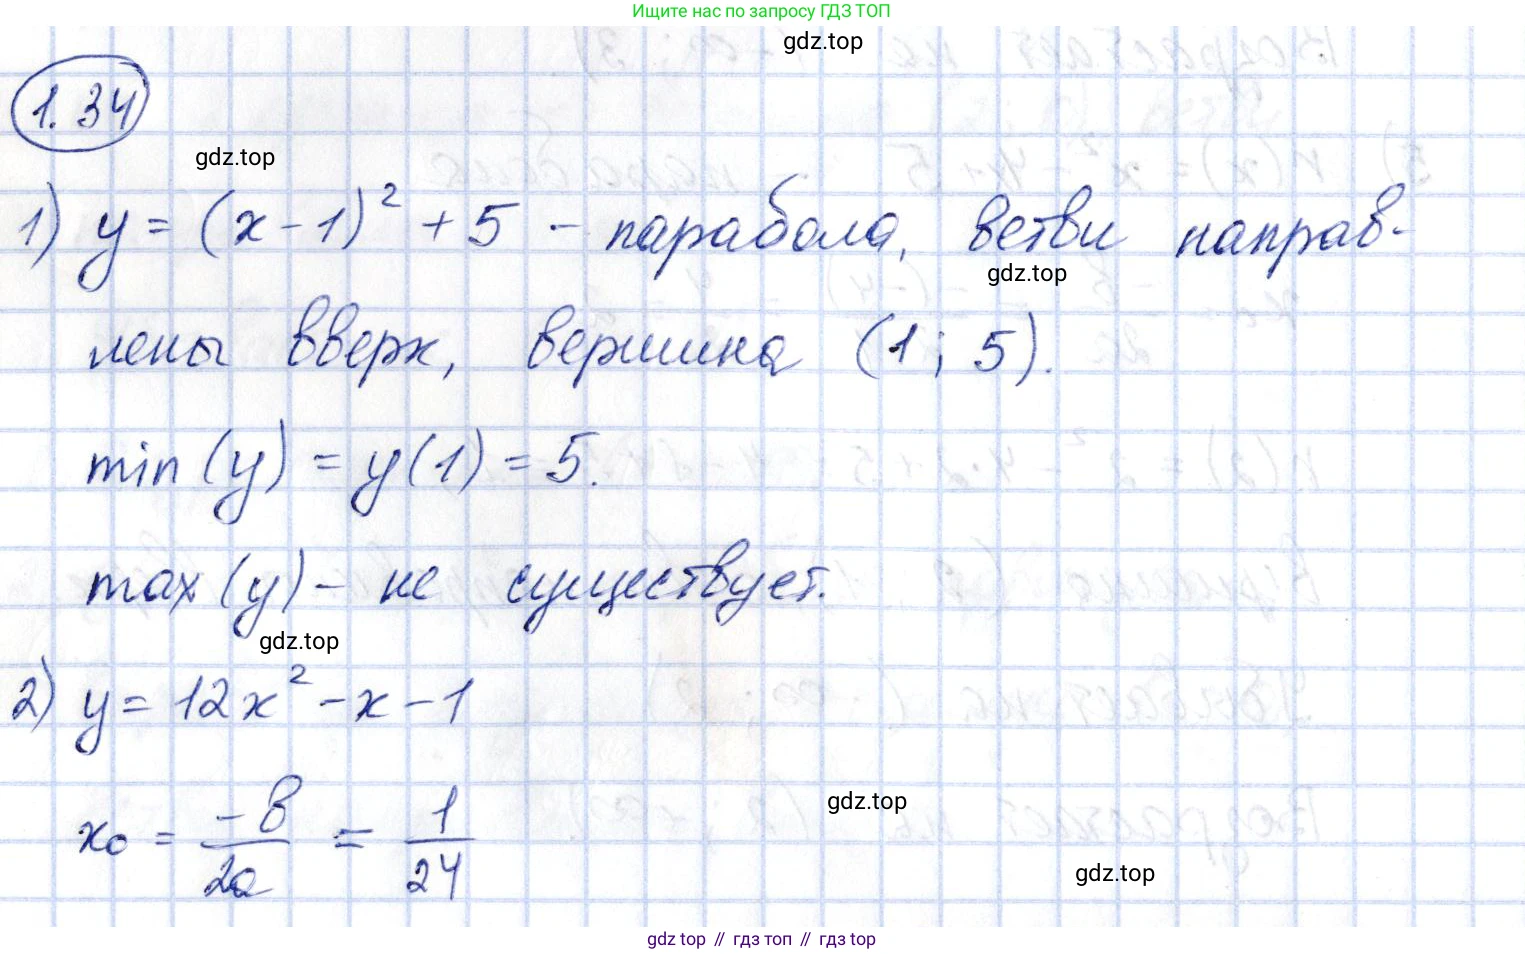 Ищите нас по запросу ГДЗ ТОП
gdz.top
1.34
gdz.top
1) y = (x - 1)² + 5 - парабола, ветви направ-
gdz.top
лены вверх, вершина (1; 5).
min (y) = y(1) = 5.
max (y) - не существует.
gdz.top
2) y = 12x² - x - 1
x₀ = -b/2a = 1/24
gdz.top
gdz.top
gdz top // гдз топ // гдз top